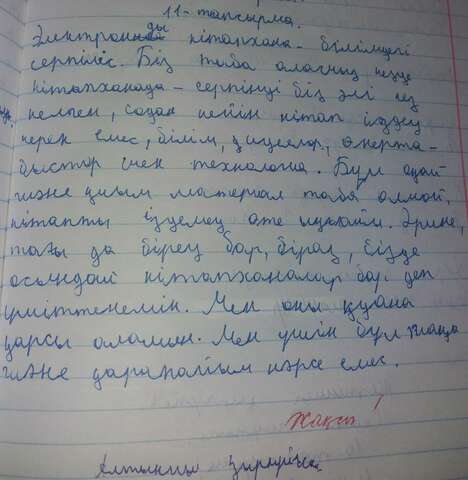 11-тапсырма.
Электронды кітапхана - білімдегі
серпіліс. Біз таба алағның
кітапханада - серпінді біз әлі кез
келген, содан кейін кітап іздеу
керек емес, білім, өнерта-
быстар мен технология. Бұл
және қиын материал таба алмай,
кітапты іздемей өте ыңғайлы. Әрине,
тағы да бірең бар, бірақ, бізде
осындай кітапханалар бар деп
үміттенемін. Мен оны қуана
қарсы аламын. Мен үшін бұл жаңа
және қарапайым нәрсе емес.
Жақсы!